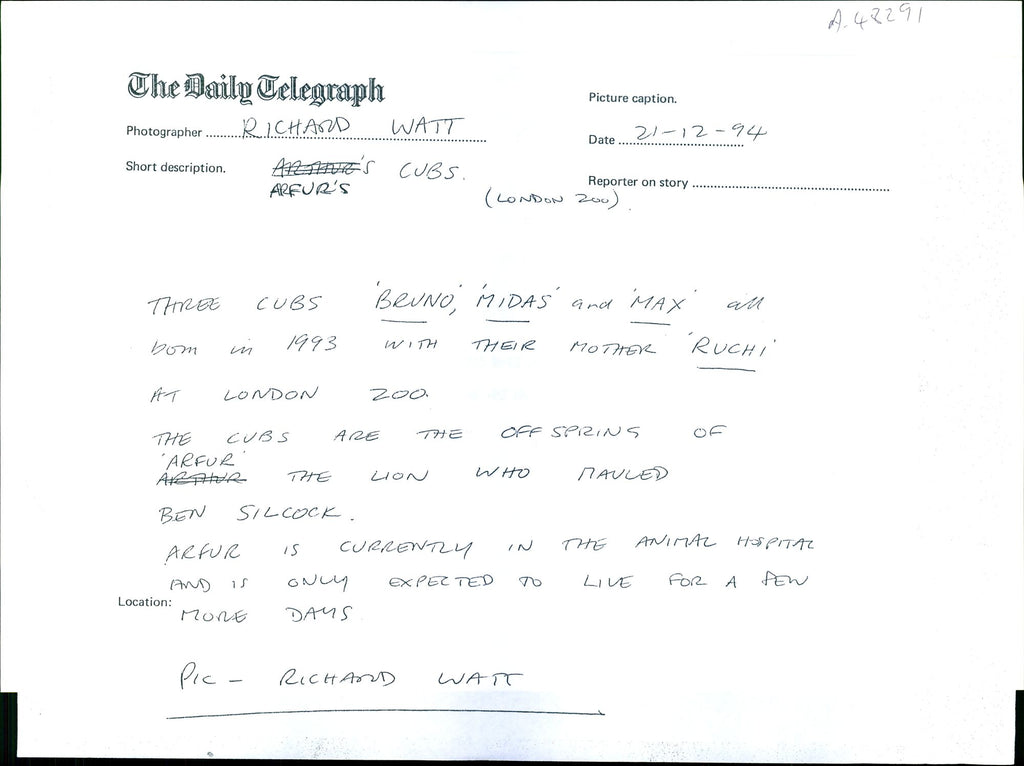 A.48291
The Daily Telegraph
Picture caption.
Photographer RICHARD WATT
Date 21-12-94
Short description. ARTHUR'S CUBS.
ARFUR'S
(LONDON ZOO).
Reporter on story
THREE CUBS 'BRUNO', 'MIDAS' and 'MAX' all
born in 1993 WITH THEIR MOTHER 'RUCHI'
AT LONDON ZOO.
THE CUBS ARE THE OFFSPRING OF
'ARFUR'
ARTHUR THE LION WHO MAULED
BEN SILCOCK.
ARFUR IS CURRENTLY IN THE ANIMAL HOSPITAL
AND IS ONLY EXPECTED TO LIVE FOR A FEW
Location:
MORE DAYS
PIC - RICHARD WATT